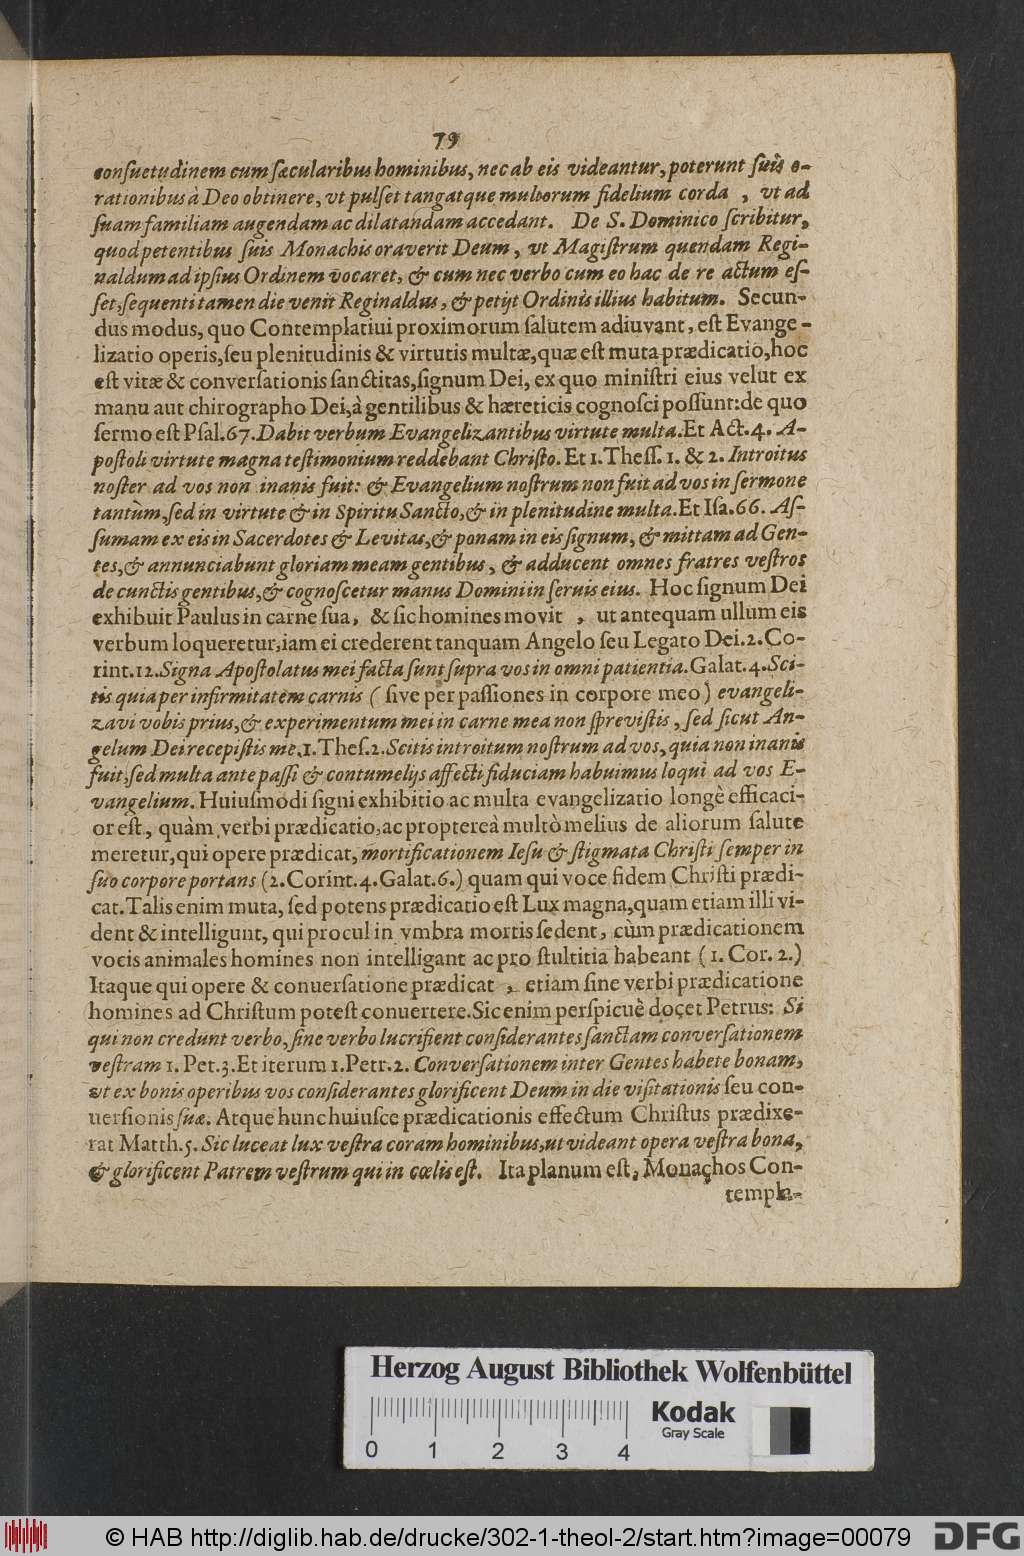 79
conſuetudinem cum ſæcularibus hominibus, nec ab eis videantur, poterunt ſuis o-
rationibus à Deo obtinere, vt pulſet tangatque multorum fidelium corda , vt ad
ſuam familiam augendam ac dilatandam accedant. De S. Dominico ſcribitur,
quod petentibus ſuis Monachis oraverit Deum, vt Magiſtrum quendam Regi-
naldum ad ipſius Ordinem vocaret, & cum nec verbo cum eo hac de re actum eſ-
ſet, ſequenti tamen die venit Reginaldus, & petijt Ordinis illius habitum. Secun-
dus modus, quo Contemplatiui proximorum ſalutem adiuvant, eſt Evange-
lizatio operis, ſeu plenitudinis & virtutis multæ, quæ eſt muta prædicatio, hoc
eſt vitæ & converſationis ſanctitas, ſignum Dei, ex quo miniſtri eius velut ex
manu aut chirographo Dei, à gentilibus & hæreticis cognoſci poſſunt: de quo
ſermo eſt Pſal. 67. Dabit verbum Evangelizantibus virtute multa. Et Act. 4. A-
poſtoli virtute magna teſtimonium reddebant Chriſto. Et 1. Theſſ. 1. & 2. Introitus
noſter ad vos non inanis fuit: & Evangelium noſtrum non fuit ad vos in ſermone
tantùm, ſed in virtute & in Spiritu Sancto, & in plenitudine multa. Et Iſa. 66. Aſ-
ſumam ex eis in Sacerdotes & Levitas, & ponam in eis ſignum, & mittam ad Gen-
tes, & annunciabunt gloriam meam gentibus, & adducent omnes fratres veſtros
de cunctis gentibus, & cognoſcetur manus Domini in ſeruis eius. Hoc ſignum Dei
exhibuit Paulus in carne ſua, & ſic homines movit , ut antequam ullum eis
verbum loqueretur, iam ei crederent tanquam Angelo ſeu Legato Dei. 2. Co-
rint. 12. Signa Apoſtolatus mei facta ſunt ſupra vos in omni patientia. Galat. 4. Sci-
tis quia per infirmitatem carnis ( ſive per paſſiones in corpore meo) evangeli-
zavi vobis prius, & experimentum mei in carne mea non ſpreviſtis, ſed ſicut An-
gelum Dei recepiſtis me. 1. Theſ. 2. Scitis introitum noſtrum ad vos, quia non inanis
fuit, ſed multa ante paſſi & contumelijs affecti fiduciam habuimus loqui ad vos E-
vangelium. Huiuſmodi ſigni exhibitio ac multa evangelizatio longè efficaci-
or eſt, quàm verbi prædicatio, ac proptereà multò melius de aliorum ſalute
meretur, qui opere prædicat, mortificationem Ieſu & ſtigmata Chriſti ſemper in
ſuo corpore portans (2. Corint. 4. Galat. 6.) quam qui voce fidem Chriſti prædi-
cat. Talis enim muta, ſed potens prædicatio eſt Lux magna, quam etiam illi vi-
dent & intelligunt, qui procul in vmbra mortis ſedent, cùm prædicationem
vocis animales homines non intelligant ac pro ſtultitia habeant (1. Cor. 2.)
Itaque qui opere & conuerſatione prædicat , etiam ſine verbi prædicatione
homines ad Chriſtum poteſt conuertere. Sic enim perſpicuè docet Petrus: Si
qui non credunt verbo, ſine verbo lucrifient conſiderantes ſanctam converſationem
veſtram 1. Pet. 3. Et iterum 1. Petr. 2. Converſationem inter Gentes habete bonam,
vt ex bonis operibus vos conſiderantes glorificent Deum in die viſitationis ſeu con-
uerſionis ſuæ. Atque hunc huiuſce prædicationis effectum Chriſtus prædixe-
rat Matth. 5. Sic luceat lux veſtra coram hominibus, ut videant opera veſtra bona,
& glorificent Patrem veſtrum qui in cœlis eſt. Ita planum eſt, Monachos Con-
templa-
Herzog August Bibliothek Wolfenbüttel
0 1 2 3 4
Kodak
Gray Scale
© HAB http://diglib.hab.de/drucke/302-1-theol-2/start.htm?image=00079
DFG